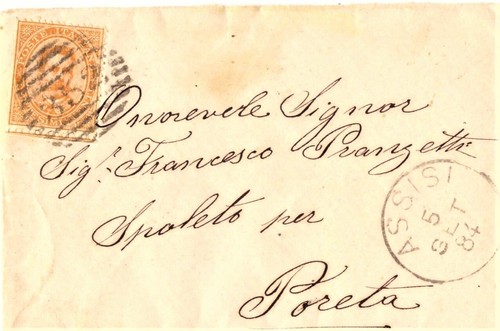 POSTE ITALIANE
Onorevole Signor
Sig.r Francesco Pranzetti
Spoleto per
Poreta
ASSISI
5
SET
84